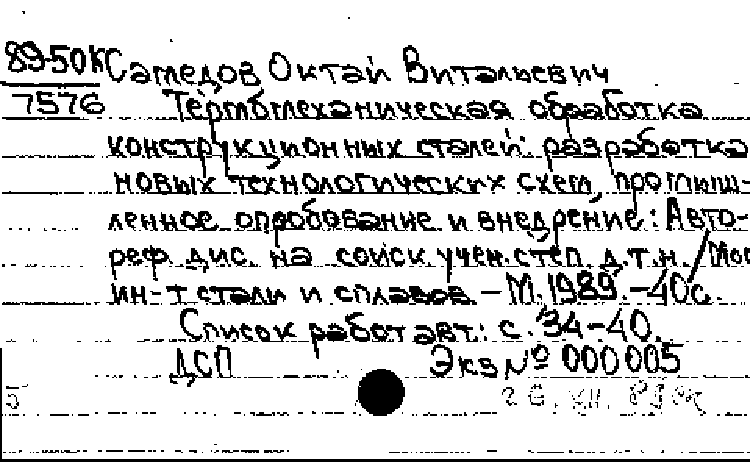 89-50К Саmедов Октай Витальевич
7576 Термомеханическая обработка
конструкционных сталей: разработка
новых технологических схем, промыш-
ленное опробование и внедрение: Авто-
реф. дис. на соиск. учен. степ. д.т.н. Мос
ин-т стали и сплавов. – М. 1989. – 40с.
Список работ авт.: с. 34-40.
ДСП Экз № 000005